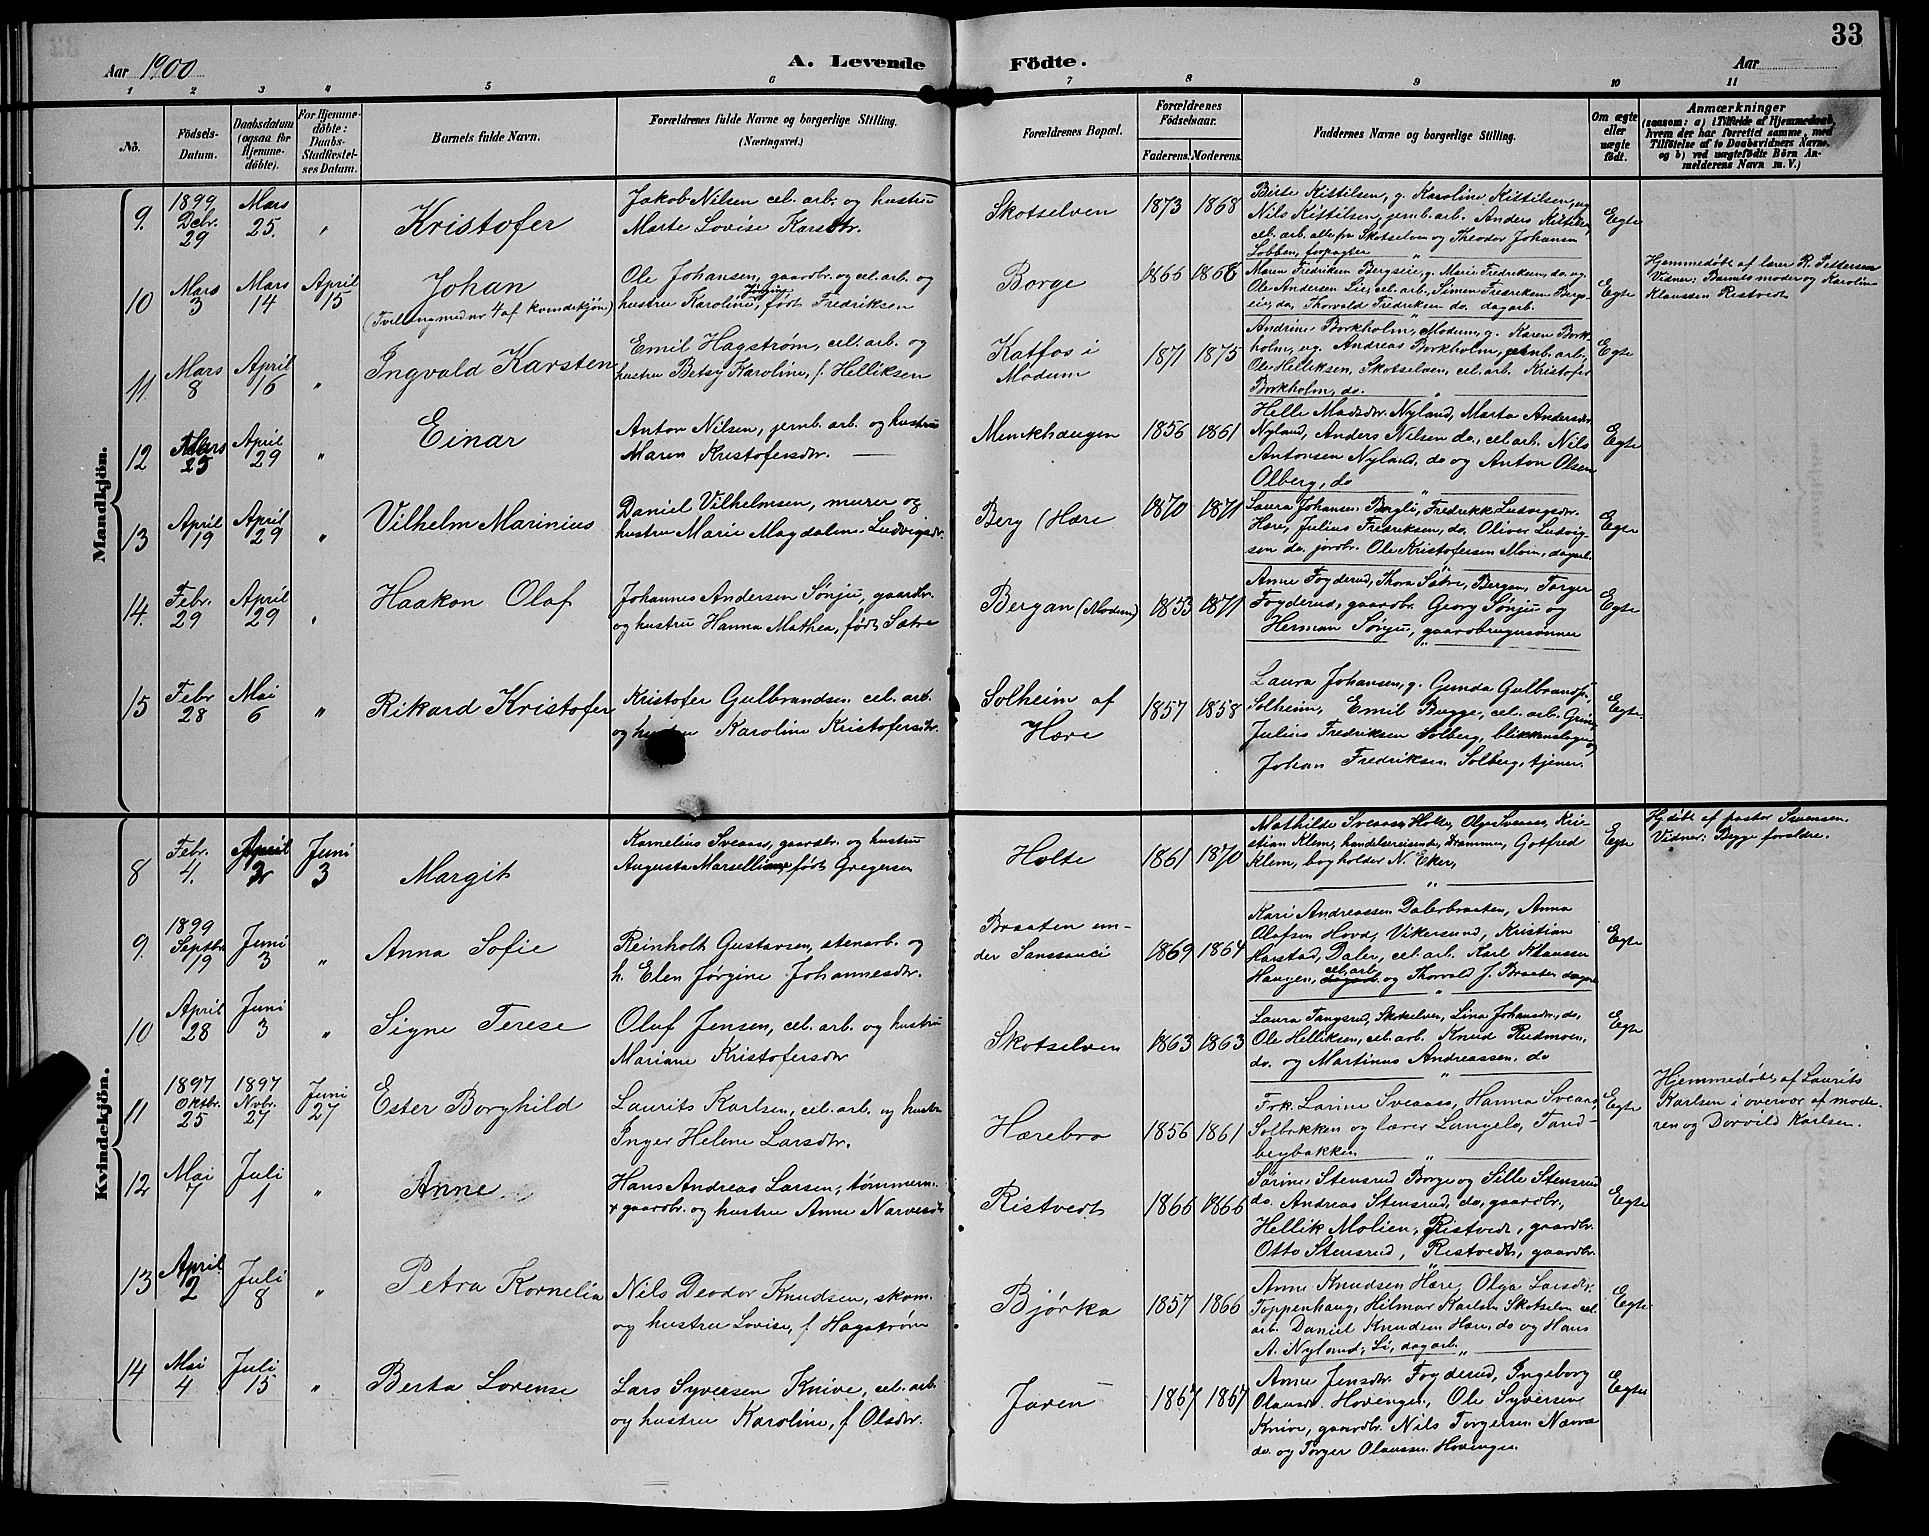 33
Aar 1900
A. Levende Födte.
Aar
1 2 3 4 5 6 7 8 9 10 11
No.
Födsels-
Datum.
Daabsdatum
(ogsaa for
Hjemme-
döbte).
For Hjemme-
döbte:
Daabs-
Stadfæstel-
ses Datum.
Barnets fulde Navn.
Forældrenes fulde Navne og borgerlige Stilling.
(Næringsvei.)
Forældrenes Bopæl.
Forældrenes
Födselsaar.
Faderens. Moderens.
Faddernes Navne og borgerlige Stilling.
Om ægte
eller
uægte
født.
Anmærkninger
(saasom: a) i Tilfælde af Hjemmedaab,
hvem der har forrettet samme, med
Tilföielse af to Daabsvidners Navne.
og b) ved uægtefödte Börn An-
melderens Navn m. V.)
Mandkjön.
9. 1899 Decbr. 29 Mars 25. „ Kristofer
Jakob Nilsen cel. arb. og hustru
Marte Lovise Karsdtr.
Skotselven 1873 1868
Birte Kittilsen, g. Karoline Kittilsen, ug.
Nils Kittilsen, jernb. arb. Anders Kittilsen
cel. arb. alle fra Skotselven og Theodor Johansen
Lobben, forpagter
Egte
10 Mars 3 Mars 14 April 15 Johan
(Tvilling med nr 4 af kvindekjøn)
Ole Johansen, gaardbr. og cel. arb. og
hustru Karoline Jørgine, født Fredriksen
Borge 1866 1866
Maren Fredriksen Bergseie, g. Marie Fredriksen, do. ug.
Ole Andersen Lie, cel. arb., Simen Fredriksen Berg-
seie, do, Thorvald Fredriksen do. dagarb.
Egte
Hjemmedøbt af lærer R. Pettersen
Vidner: Barnets moder og Karoline
Klaussen Ristvedt
11 Mars 8 April 16 „ Ingvald Karsten
Emil Hagstrøm, cel. arb. og
hustru Betsy Karoline, f. Helliksen
Katfos i
Modum
1871 1875
Andrine Borkholm, Modum, g. Karen Bork-
holm, ug. Andreas Borkholm, jernb. arb.,
Ole Helliksen, Skotselven, cel. arb. Kristofer
Borkholm, do.
Egte
12 Mars 25 April 29 „ Einar
Anton Nilsen, jernb. arb. og hustru
Maren Kristofersdtr.
Munkhaugen 1856 1861
Helle Madsdtr. Nyland, Marta Andersdtr.
Nyland, Anders Nilsen do., cel. arb. Nils
Antonsen Nyland, do og Anton Olsen
Olberg, do
Egte
13 April 19 April 29 „ Vilhelm Marinius
Daniel Vilhelmsen, murer og
hustru Marie Magdalene Ludvigsdtr.
Berg (Hære 1870 1871
Laura Johansen Bergli, Fredrikke Ludvigsdtr.
Hære, Julius Fredriksen, do. Oliver Ludvig-
sen do. jordbr. Ole Kristofersen Moen, dagarb.
Egte
14. Febr. 29 April 29 „ Haakon Olaf
Johannes Andersen Sønju, gaardbr.
og hustru Hanna Mathea, født Sætre
Bergan (Modum) 1853 1871
Anne Fogderud, Thora Sætre, Bergan, Torger
Fogderud, gaardbr. Georg Sønju og
Herman Sønju, gaardbrugersønner
Egte
15 Febr 28 Mai 6 „ Rikard Kristofer
Kristofer Gulbrandsen cel. arb.
og hustru Karoline Kristofersdtr.
Solheim af
Hære
1857 1858
Laura Johansen, g. Gunda Gulbrands.
Solheim, Emil Bugge, cel. arb.
Julius Fredriksen Solberg, blikkenslager og
Johan Fredriksen Solberg, tjener.
Egte
Kvindekjön.
8 Febr. 4. April 2 Juni 3 Margit
Kornelius Sveaas, gaardbr. og hustru
Augusta Marselliane født Gregersen
Holte 1861 1870
Mathilde Sveaas, Holte, Olga Sveaas, Kri-
stian Klem, handelsreisende, Drammen, Gotfred
Klem, bogholder N. Eker.
Egte
Hjdøbt af pastor Svensen.
Vidner: Begge forældre.
9. 1899 Septbr. 19 Juni 3 „ Anna Sofie
Reinholt Gustavsen, stenarb. og
h. Elen Jørgine Johannesdtr.
Braaten un-
der Sanssouci
1869 1864
Kari Andreassen Dalerbraaten, Anna
Olafsen Hovd, Vikersund, Kristian
Harstad, Daler, cel. arb. Karl Klaussen
Haugen, cel. arb. og Thorvald J. Braaten dagarb.
Egte
10 April 28 Juni 3 „ Signe Terese
Oluf Jensen, cel. arb. og hustru
Mariane Kristofersdtr
Skotselven 1863 1863
Laura Tangsrud, Skotselven, Lina Johansdtr., do,
Ole Helliksen, cel. arb. Knud Rudmoen,
do. og Martinus Andreassen, do
Egte
11 1897 Oktbr. 25 1897 Nvbr. 27 Juni 27 Ester Borghild
Laurits Karlsen, cel. arb. og hustru
Inger Helene Larsdtr.
Hærebro 1856 1861
Frk. Larine Sveaas, Hanna Sveaas,
Solbakken og lærer Langelo, Tand-
bergbakken
Egte
Hjemmedøbt af Laurits
Karlsen i overvær af mode-
ren og Dorvild Karlsen.
12 Mai 7 Juli 1 „ Anne
Hans Andreas Larsen, tømmerm.
+ gaardbr. og hustru Anne Narvesdtr
Ristvedt 1866 1866
Sørine Stensrud Borge og Sille Stensrud
do. Andreas Stensrud, do, gaardbr.,
Hellik Molien, Ristvedt, gaardbr.
Otto Stensrud, Ristvedt, gaardbr.
Egte
13 April 2 Juli 8 „ Petra Kornelia
Nils Deodor Knudsen, skom.
og hustru Lovise, f Hagstrøm
Bjørka 1857 1866
Anne Knudsen Hære, Olga Larsdtr.
Toppenhaug, Hilmar Karlsen Skotselven cel.
arb. Daniel Knudsen Hære, do og Hans
A. Nyland, Li, dagarb.
Egte
14 Mai 4 Juli 15 „ Berta Lovense
Lars Syversen Knive, cel. arb.
og hustru Karoline, f Olsdtr.
Jaren 1867 1867
Anne Jensdtr Fogderud, Ingeborg
Olausdtr. Hovenga, Ole Syversen
Knive, gaardbr. Nils Torgersen Narve
do. og Torger Olaussen Hovenga.
Egte